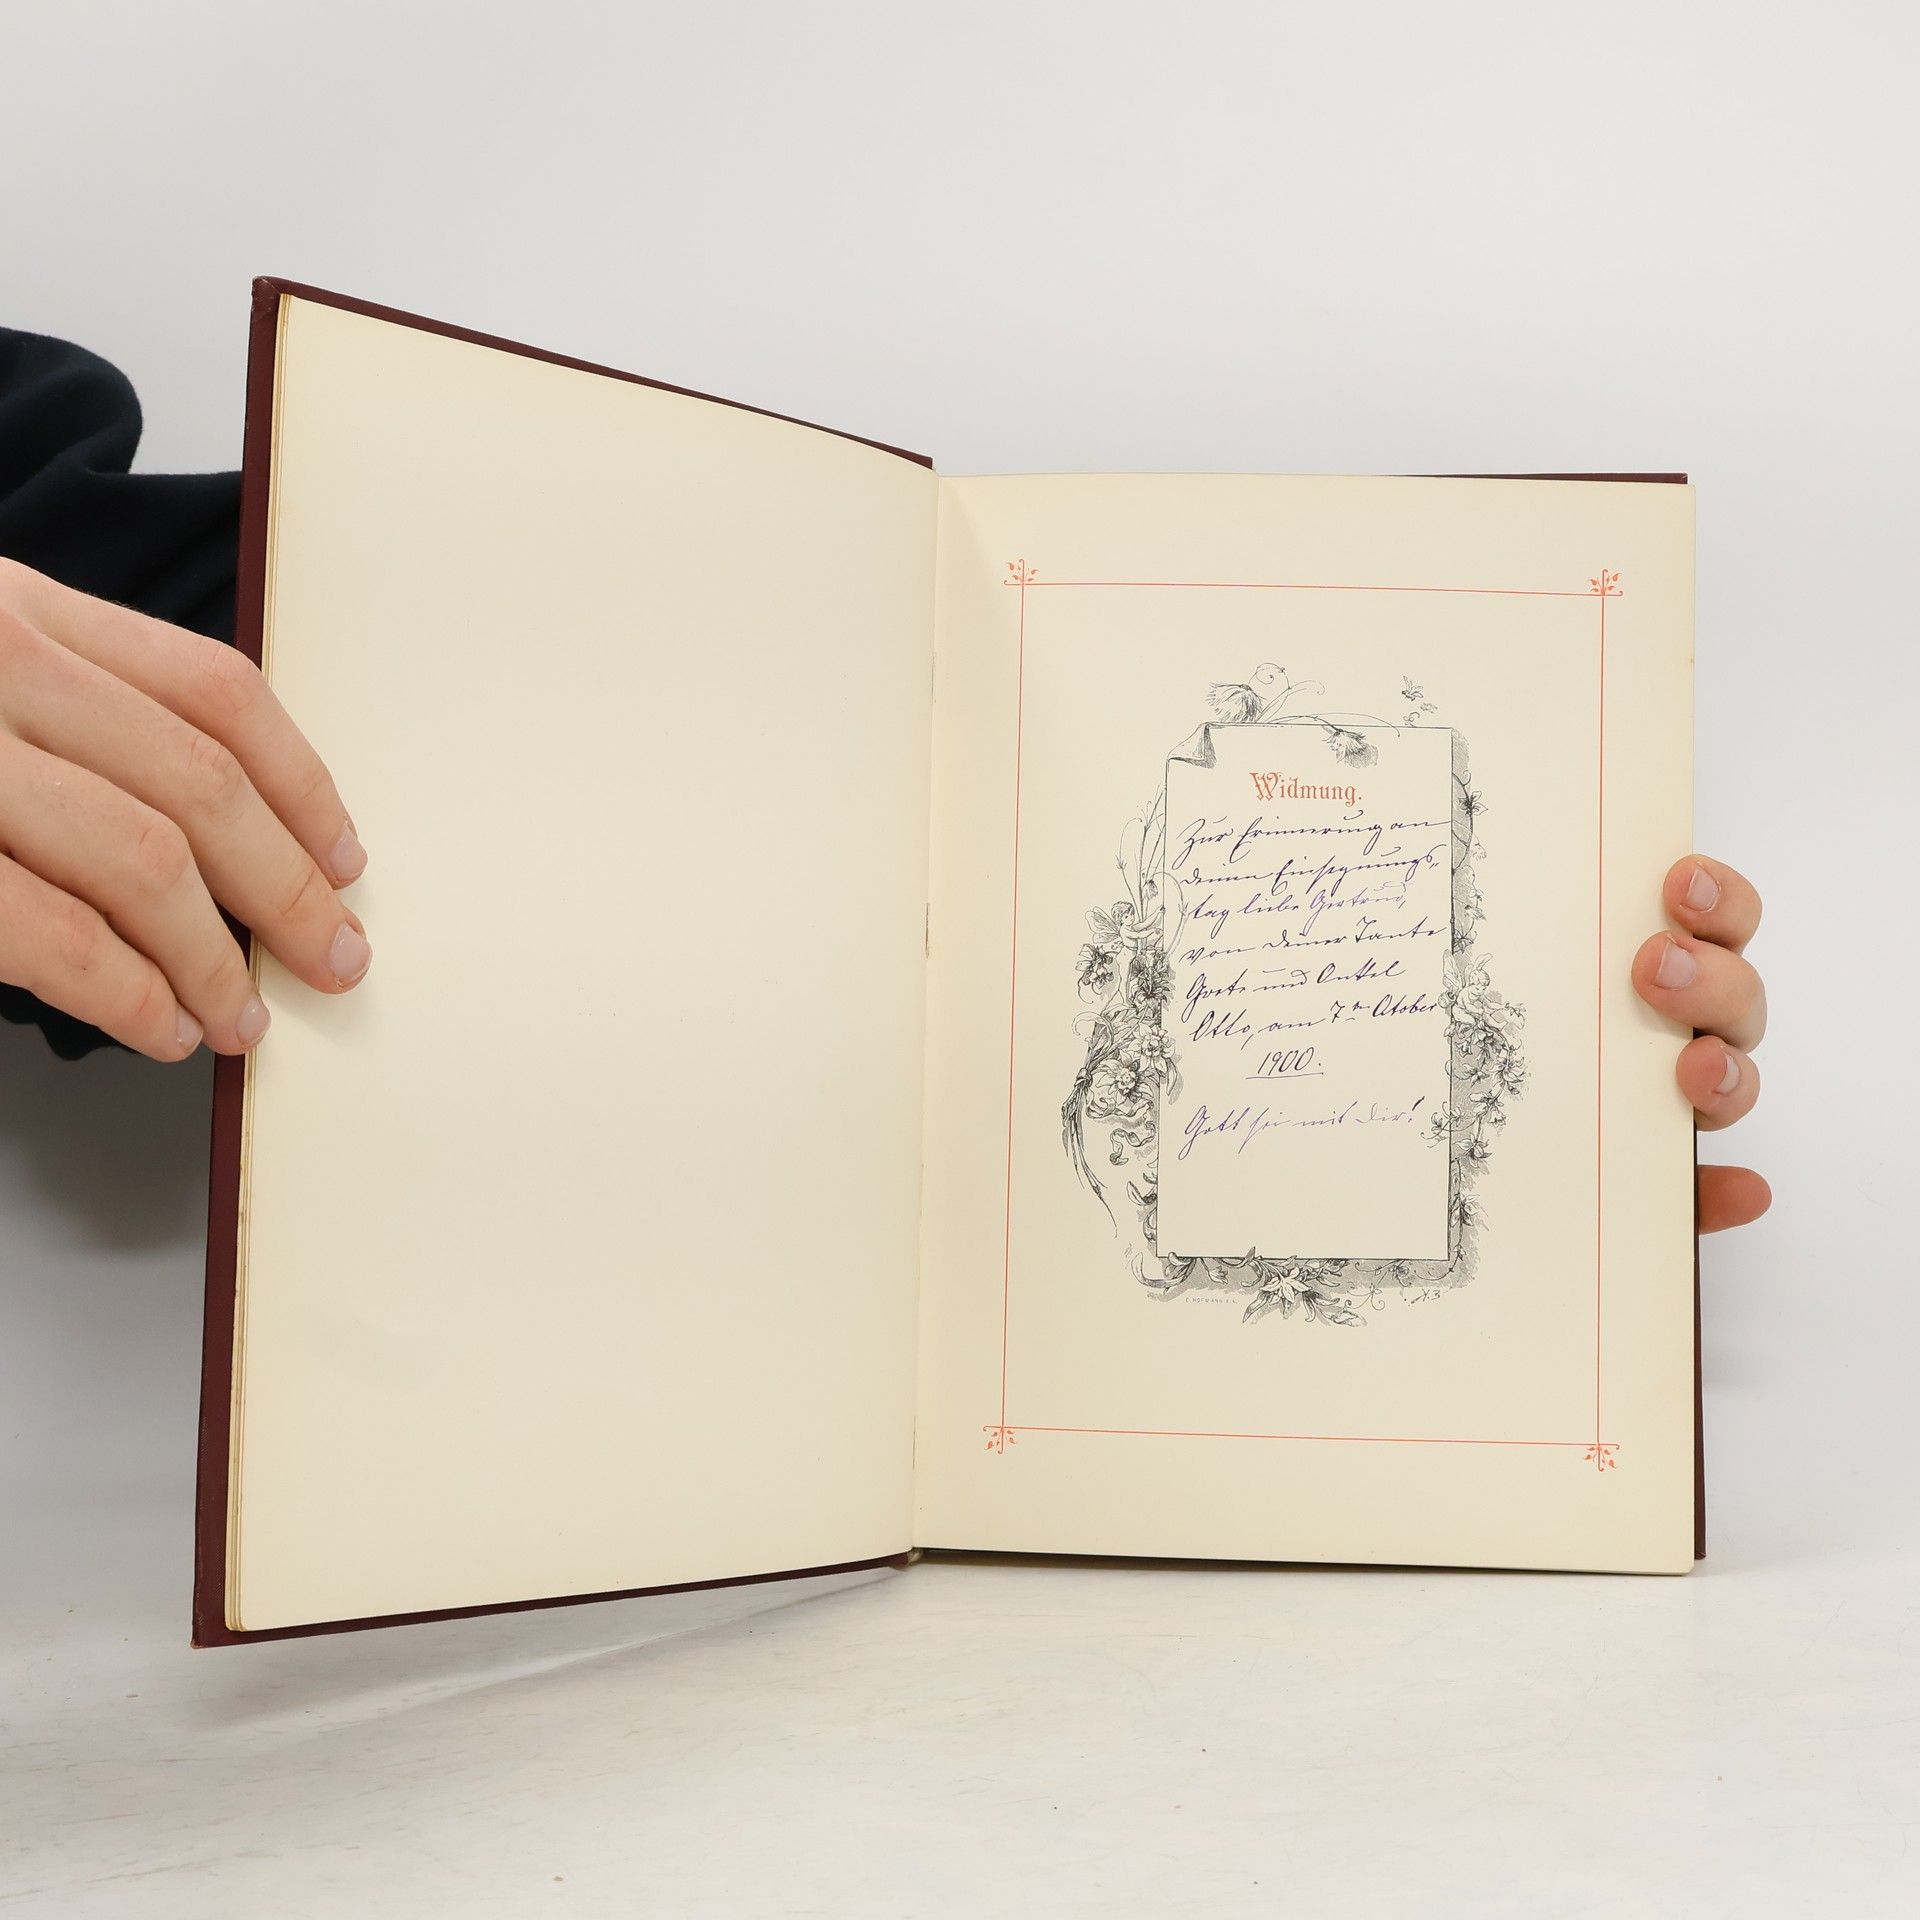 Widmung.
Zur Erinnerung an
deinen Einsegnungs-
tag liebe Gertrud,
von deiner Tante
Grete und Onkel
Otto, am 7ten Otober
1900.
Gott sei mit dir!